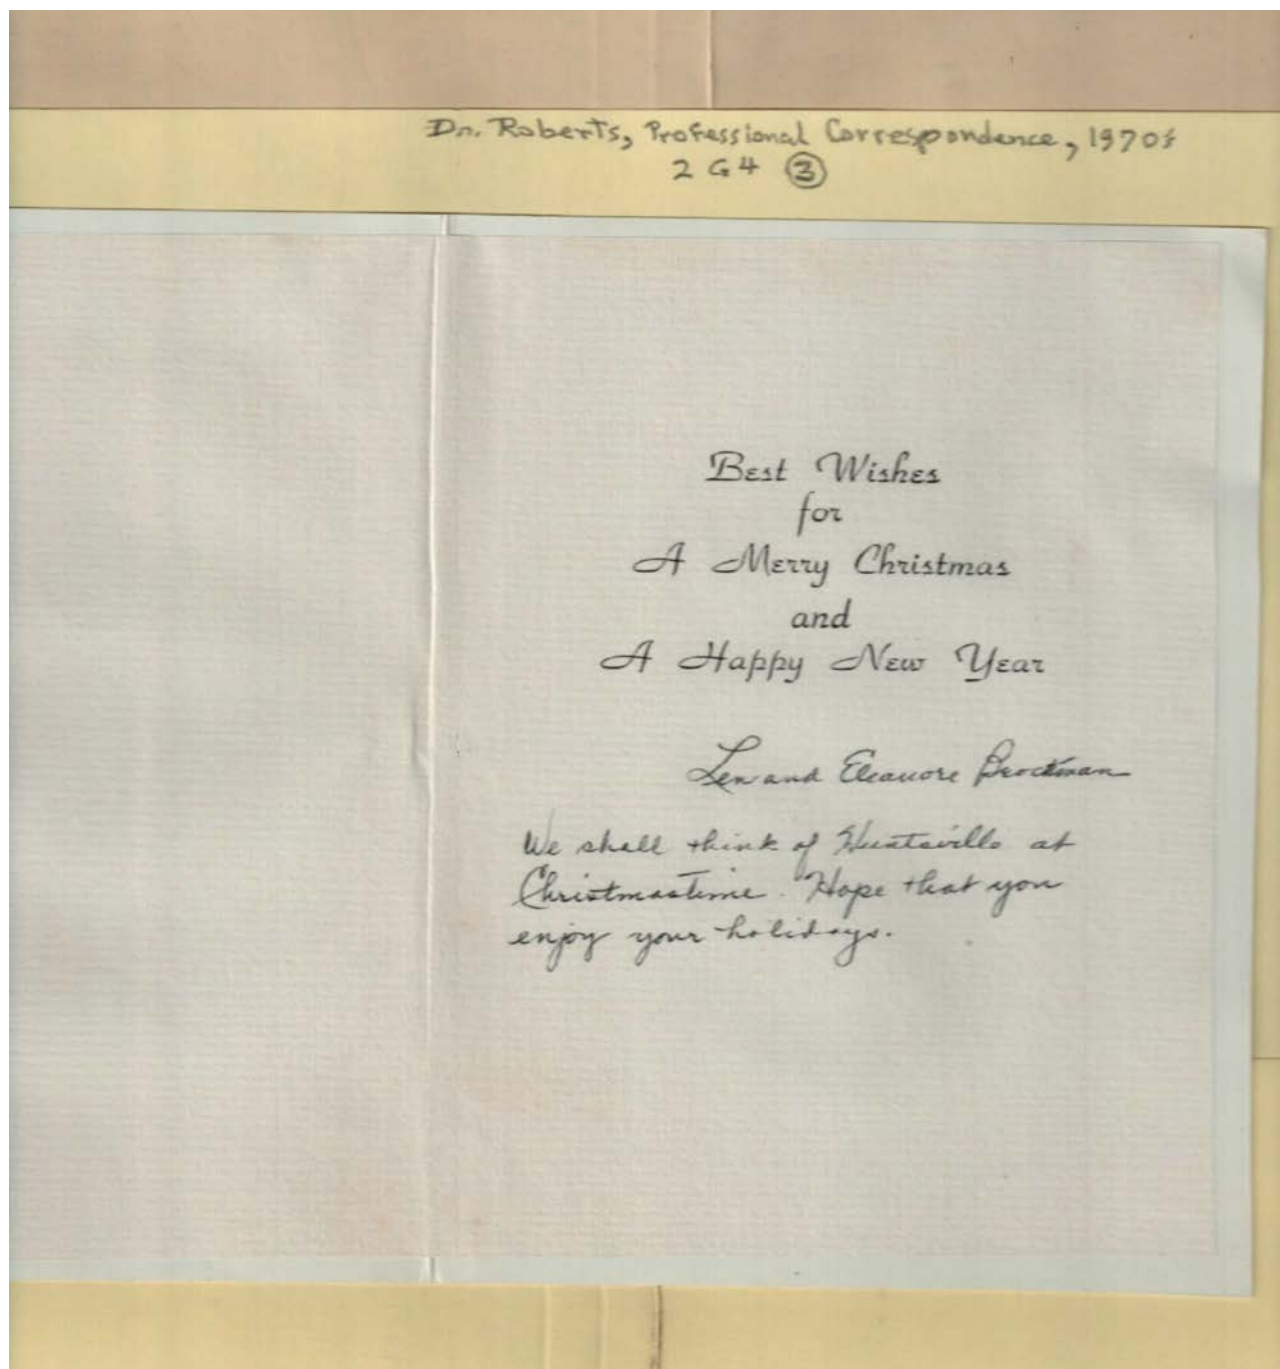 Dr. Roberts, Professional Correspondence, 1970s
2 G4 3
Best Wishes
for
A Merry Christmas
and
A Happy New Year
Len and Eleanore Brockman
We shall think of Huntsville at
Christmastime. Hope that you
enjoy your holidays.